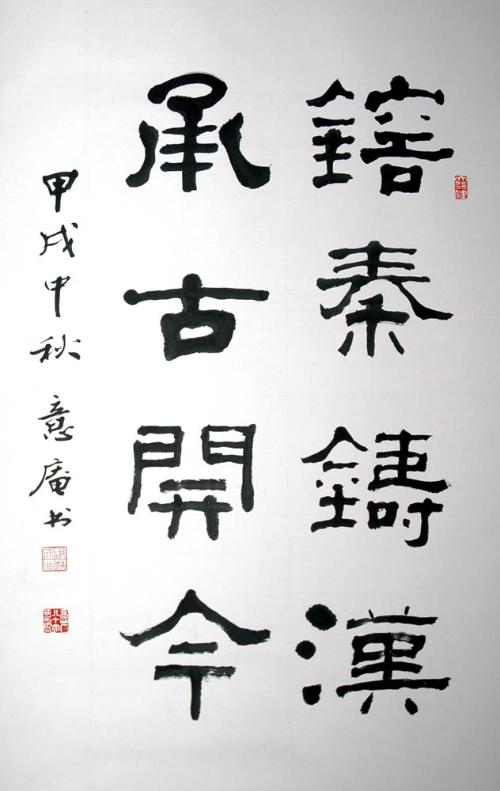 鎔秦鑄漢
承古開今
甲戌中秋 意庵书